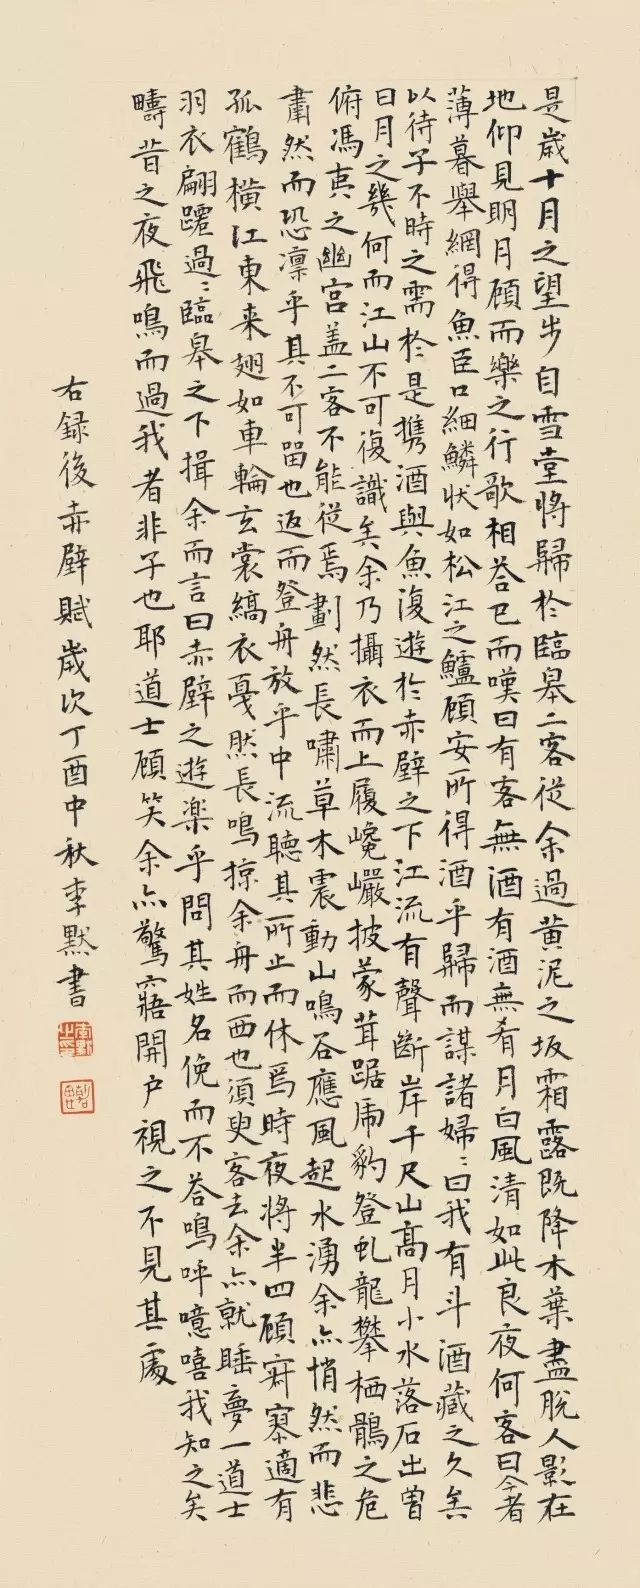 是歲十月之望步自雪堂將歸於臨皋二客從余過黃泥之坂霜露既降木葉盡脫人影在
地仰見明月顧而樂之行歌相荅已而嘆曰有客無酒有酒無肴月白風清如此良夜何客曰今者
薄暮舉網得魚巨口細鱗狀如松江之鱸顧安所得酒乎歸而謀諸婦〻曰我有斗酒藏之久矣
以待子不時之需於是攜酒與魚復遊於赤壁之下江流有聲斷岸千尺山高月小水落石出曾
日月之幾何而江山不可復識矣余乃攝衣而上履巉巖披蒙茸踞虎豹登虬龍攀栖鶻之危
俯馮夷之幽宮盖二客不能從焉劃然長嘯草木震動山鳴谷應風起水湧余亦悄然而悲
肅然而恐凛乎其不可留也返而登舟放乎中流聽其所止而休焉時夜將半四顧寂寥適有
孤鶴橫江東来翅如車輪玄裳縞衣戛然長鳴掠余舟而西也須臾客去余亦就睡夢一道士
羽衣翩躚過〻臨皋之下揖余而言曰赤壁之遊楽乎問其姓名俛而不荅嗚呼噫嘻我知之矣
疇昔之夜飛鳴而過我者非子也耶道士顧笑余亦驚寤開户視之不見其處
右録後赤壁賦歲次丁酉中秋李默書
李默之印